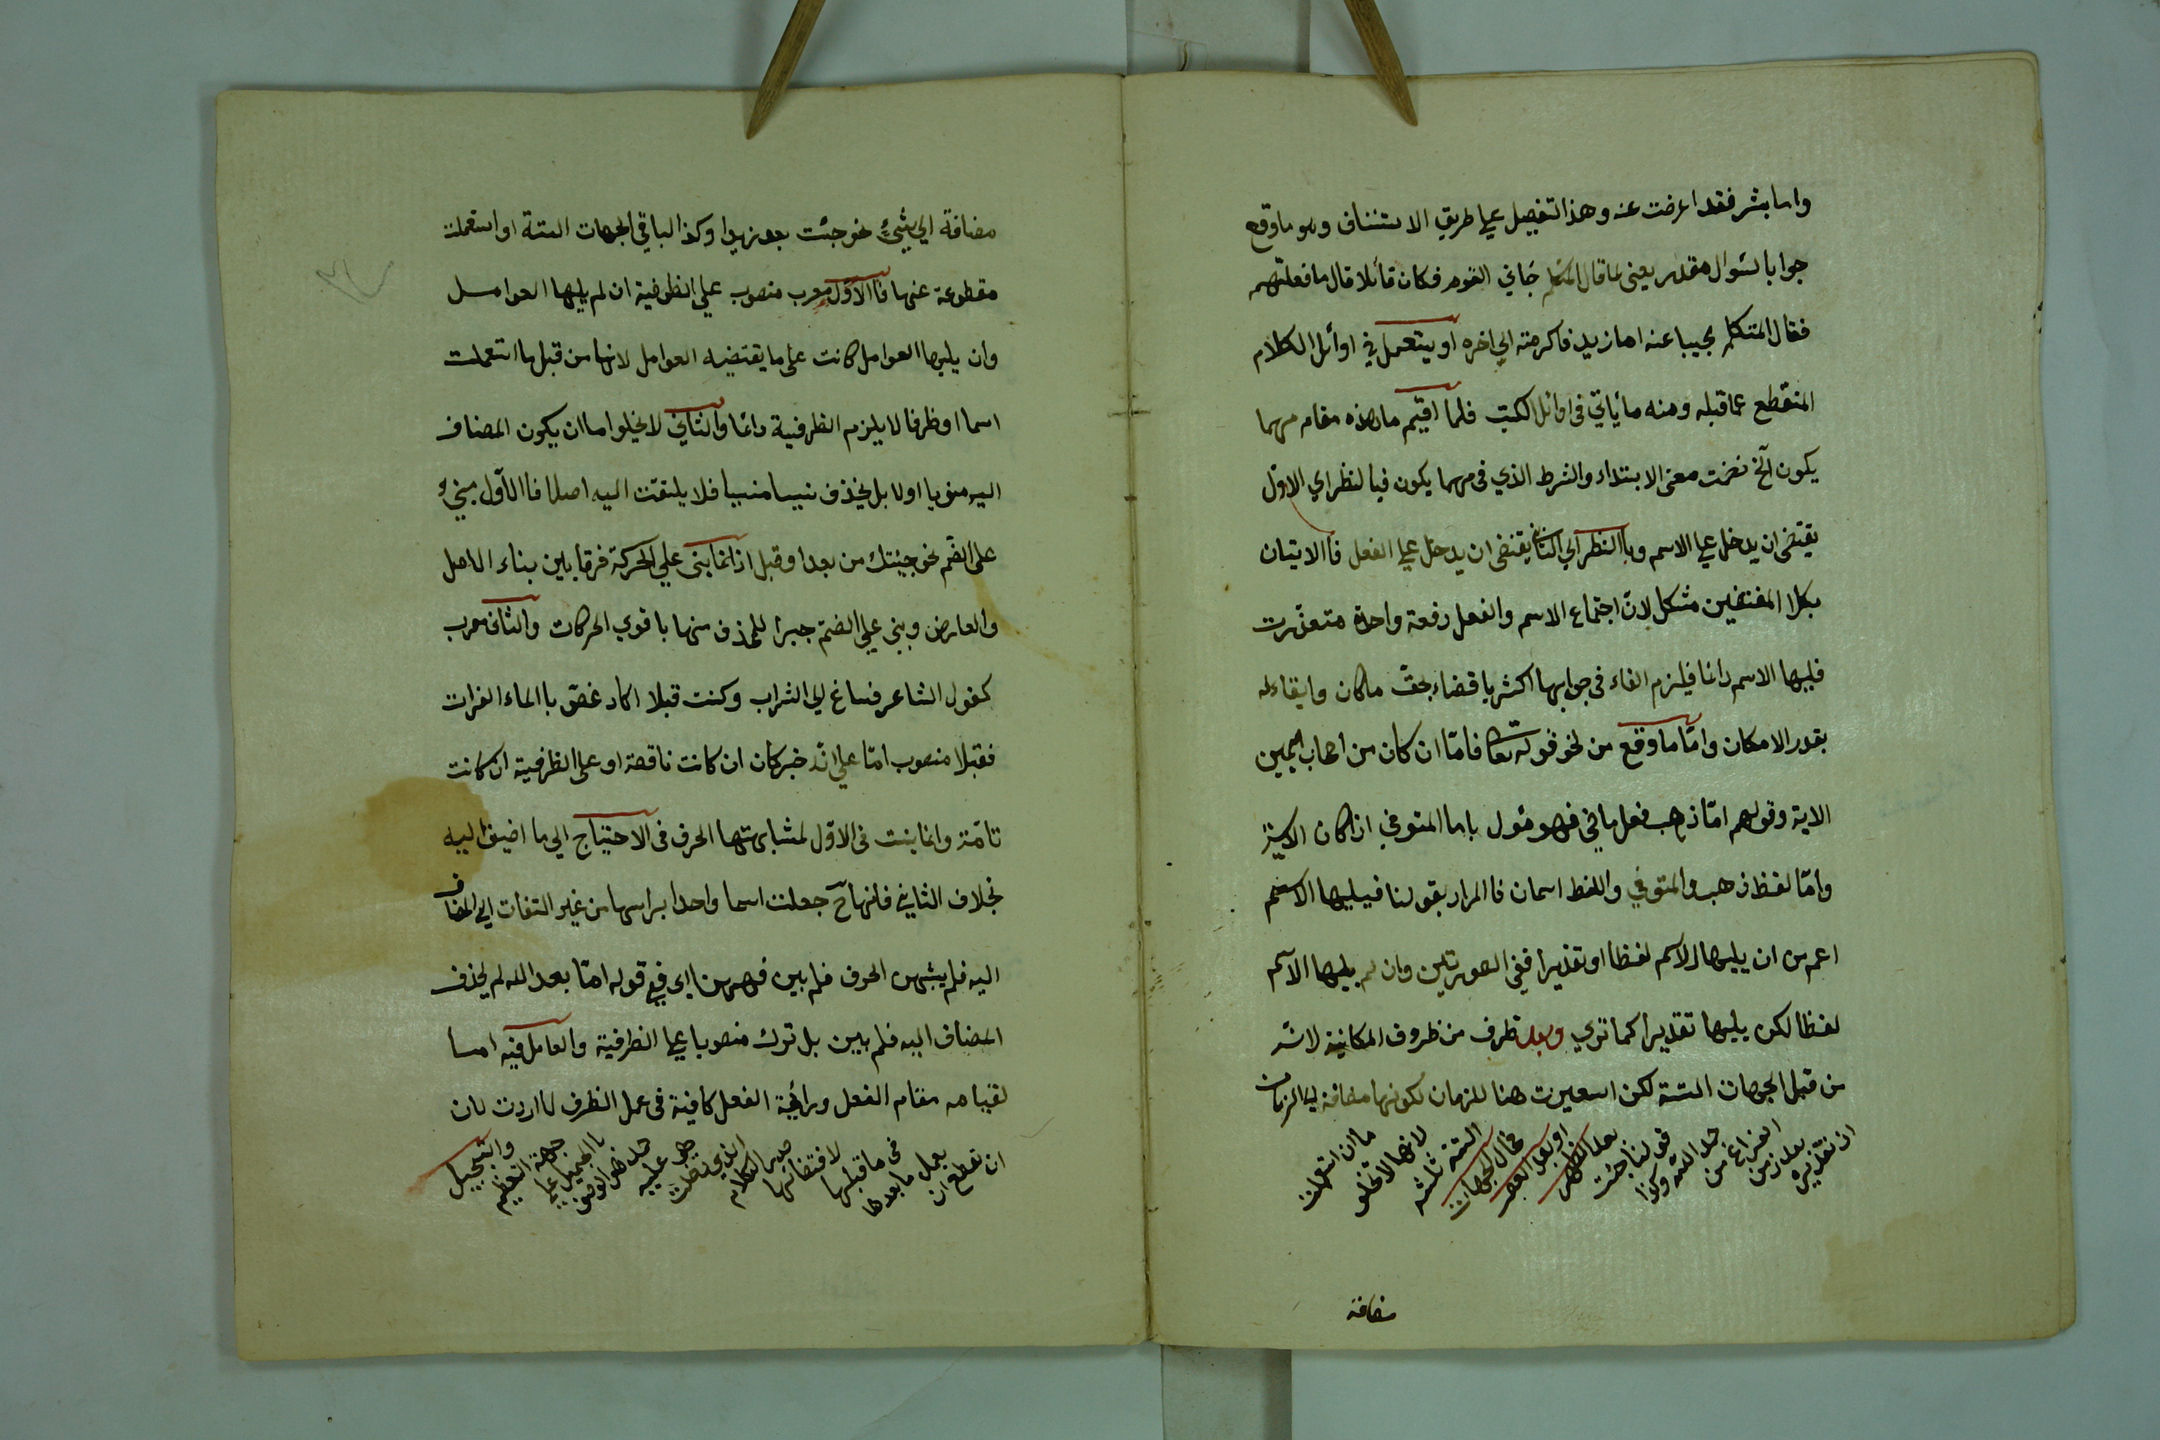 واما بشر فقد اعرضت عنه وهذا التفصيل علي طريق الاستئناف وهو ما وقع
جوابا لسٔوال مقدر يعني لما قال المتكلم جاني القوم فكان قائلا قال ما فعلت بهم
فقال المتكلم مجيبا عنه اما زيد فاكرمته الي اخره او يستعمل في اوائل الكلام
المنقطع عما قبله ومنه ما يأتي في اوائل الكتب فلما اقيم ما هذه مقام مهما
يكون آلخ تضمنت معنى الابتداء والشرط الذي في مهما يكون فبا لنظر اي الاول
يقتضي ان يدخل علي الاسم وبا النظر الي الثاني يقتضي ان يدخل علي الفعل فا الاتيان
بكلا المقتضيين مشكل لانّ اجتماع الاسم والفعل دفعة واحدة متعذرت
فليها الاسم دائما فيلزم الفاء في جوابها اكثريا قضاء بحق ما كان وابقاء له
بقدر الامكان وامّا ما وقع من نحو قوله تعا فامّا ان كان من اصحاب اليمين
الاية وقولهم امّا ذهب فعل ماضي فهو مٔول باما المتوفي اذا كان الاية
وامّا لفظ ذهب والمتوفي واللفظ اسمان فا المراد بقولنا فيليها الاسم
اعم من ان يليها الاسم لفظا او تقديرا ففي الصورتين وان لم يليها الاسم
لفظا لكن يليها تقديرا كما تري وبعد ظرف من ظروف المكانية لانه
من قبل الجهات الستة لكن استعيرت هنا للزمان لكونها مضافة الي الزمان
اذ تقديره بعد زمن الفراغ من حمد الله وكذا قولنا جئت بعد الظهر او بعد العصر فحال الجهات الستة ثلثه لانها لا تخلو اما ان استعملت
مضافة
مضافة الي شيئ نحو جئت بعد زيد وكذا الباقي الجهات الستة او استعملت
مقطوعة عنها فا الاول معرب منصوب علي الظرفية ان لم يليها العوامل
وان يليها العوامل كانت على ما يقتضيه العوامل لانها من قبل ما استعملت
اسما او ظرفا لا يلزم الظرفية دائما والثاني لا يخلوا اما ان يكون المضاف
اليه منويا اولا بل يحذف نسيا منسيا فلا يلتفت اليه اصلا فا الاول مبني
على الضم نحو جيئتك من بعد او قبل اذ انما بني علي الحركة فرقا بين بناء الاصل
والعارض وبني علي الضمّ جبرا للحذف منها با قوي الحركات والثاني معرب
كقول الشاعر فساغ لي الشراب وكنت قبلا اكاد غصّ با الماء الفرات
فقبلا منصوب امّا علي انّه خبر كان ان كانت ناقصة او على الظرفية ان كانت
تامّة وانما بنيت في الاوّل لمشابهتها الحرف في الاحتياج الي ما اضيف اليه
بخلاف الثاني فانها ح جعلت اسما واحدا براسها من غير التفات الي المضاف
اليه فلم يشبه من الحرف فلم يبين فههنا اي في قوله امّا بعد الله لم يحذف
المضاف اليه فلم يبين بل ترك منصوبا علي الظرفية والعامل فيه اما
لقيامه مقام الفعل ورائحة الفعل كافية في عمل الظرف لما اردت بان
ان تقطع ان يعمل ما بعدها في ما قبلها لاقتضائها صدر الكلام الذي وضعت هو عليه حمد هو الوصف با الجميل علي جهة التعظيم والتبجيل